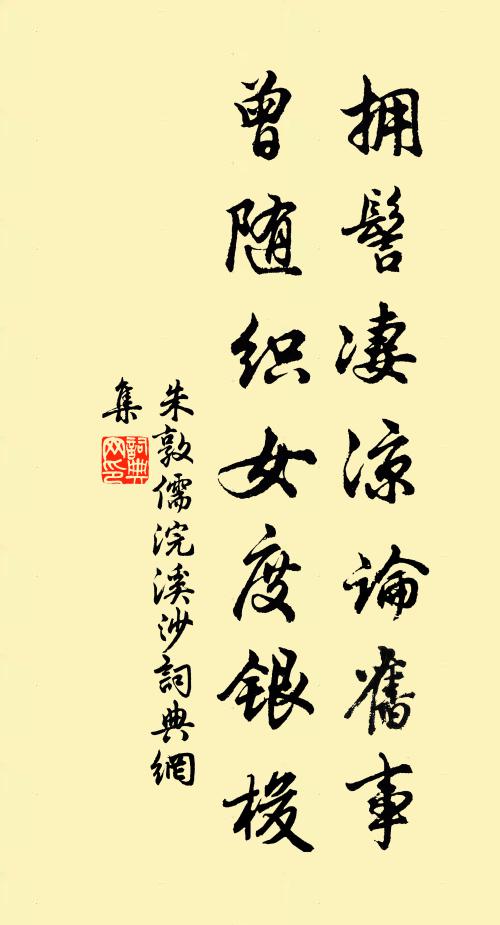 拥髻凄凉論舊事
曾随织女度银梭
朱敦儒浣溪沙詞典網
集
詞典网印